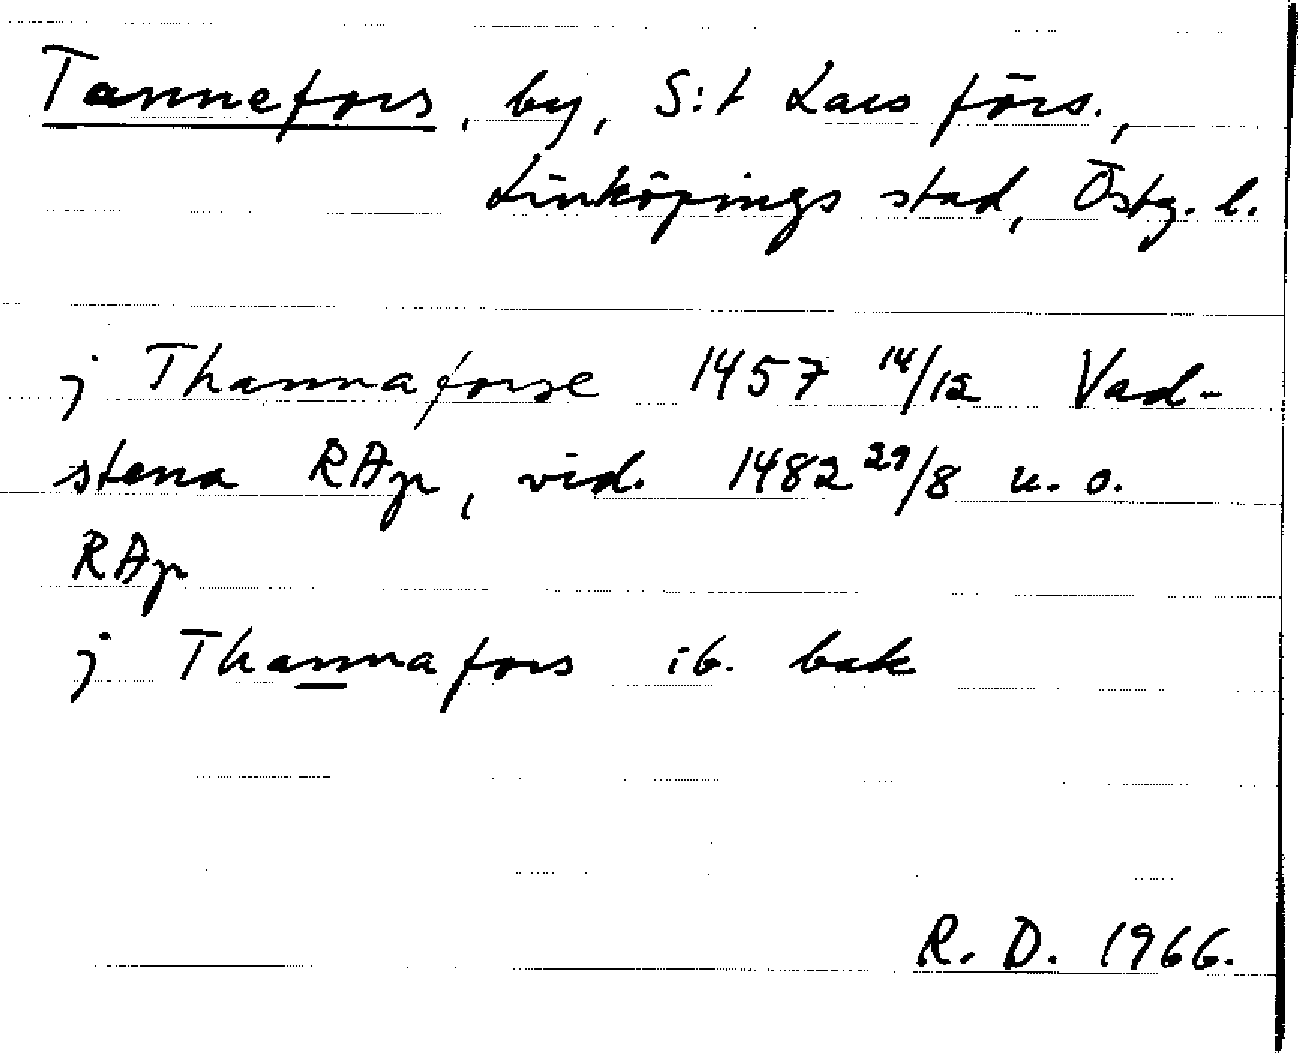 Tannefors, by, S:t Lars förs.,
Linköpings stad, Östg. l.
j Thannaforse 1457 14/12 Vad-
stena RAp, vid. 1482 29/8 u. o.
RAp
j Thannafors ib. bak
R. D. 1966.